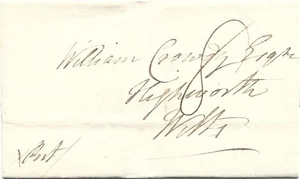 William Crowdy Esqre
8
Highworth
Wilts
Post